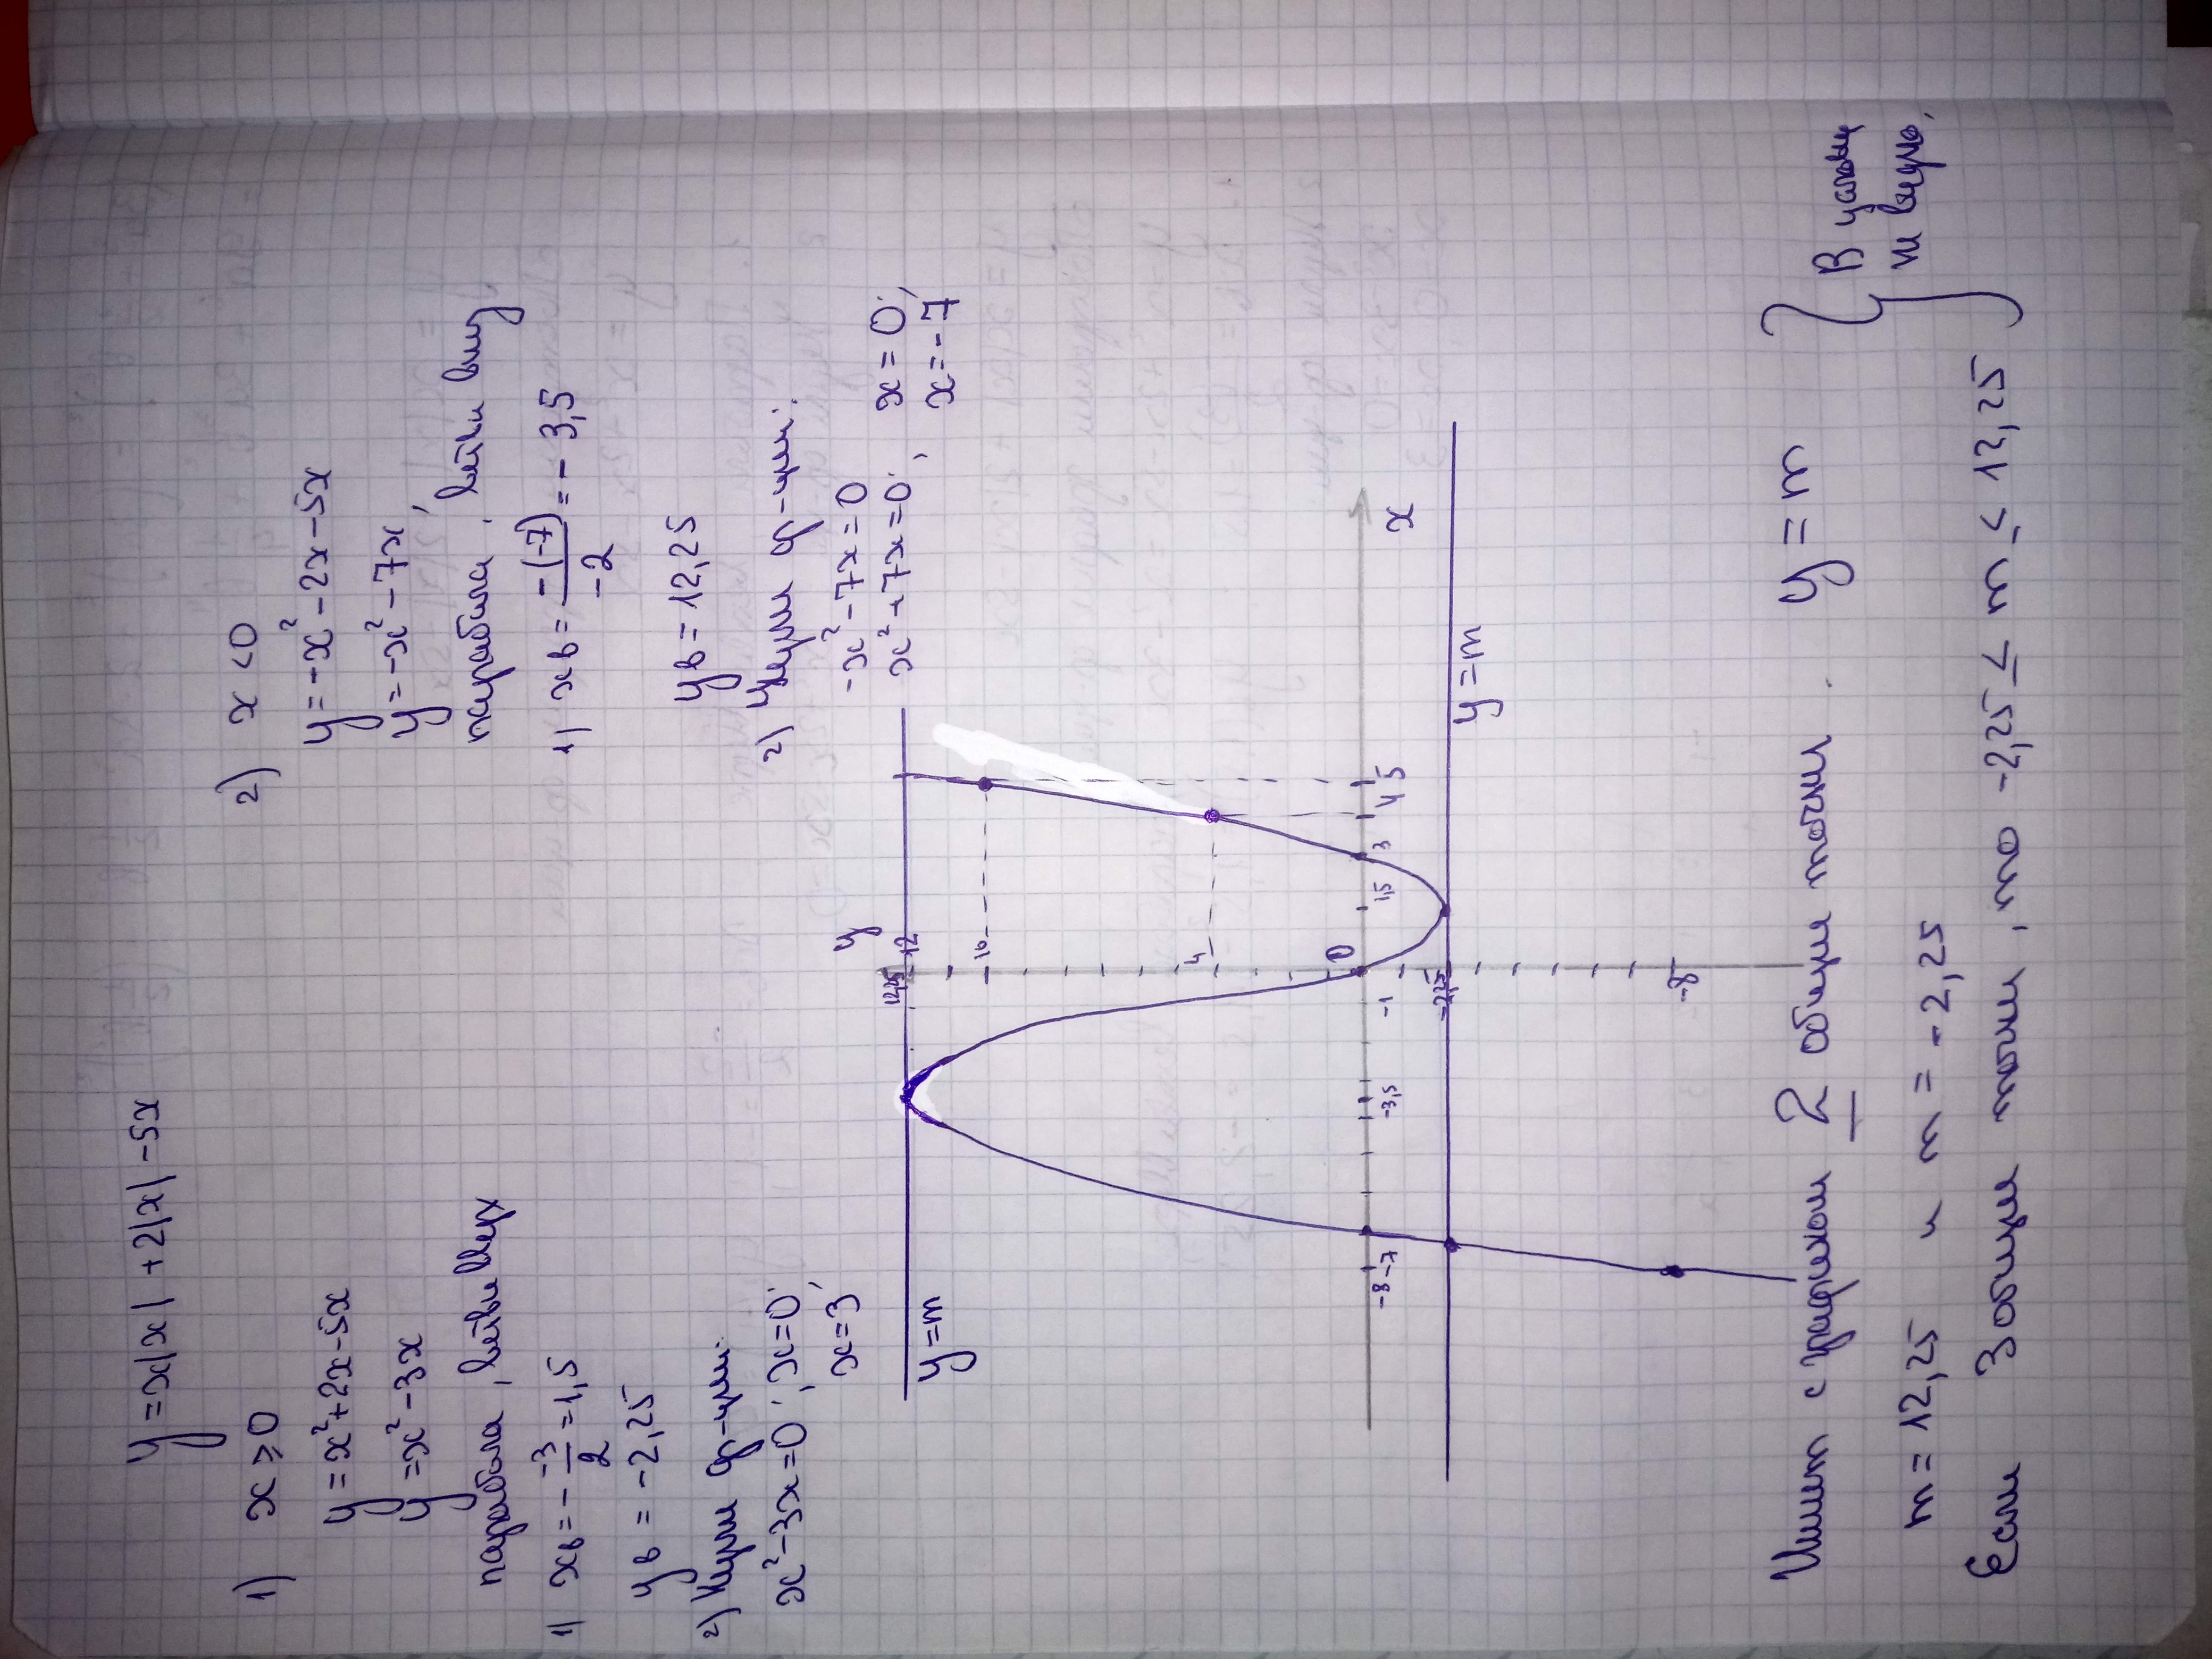 y = x|x| + 2|x| - 5x
1) x ⩾ 0
y = x² + 2x - 5x
y = x² - 3x
парабола, ветви вверх
1) xв = - -3/2 = 1,5
yв = -2,25
2) Нули ф-ции:
x² - 3x = 0; x = 0;
x = 3;
2) x < 0
y = -x² - 2x - 5x
y = -x² - 7x,
парабола, ветви вниз
1) xв = -(-7)/-2 = -3,5
yв = 12,25
2) Нули ф-ции:
-x² - 7x = 0
x² + 7x = 0; x = 0;
x = -7
y
12,25 12
10
4
0
-1
-2,25
-8
-8 -7 -3,5 1,5 3 4 5
x
y = m
y = m
Имеет с графиком 2 общие точки. y = m
m = 12,25 и m = -2,25
Если 3 общие точки, то -2,25 ≤ m ≤ 12,25
В условии
не видно.